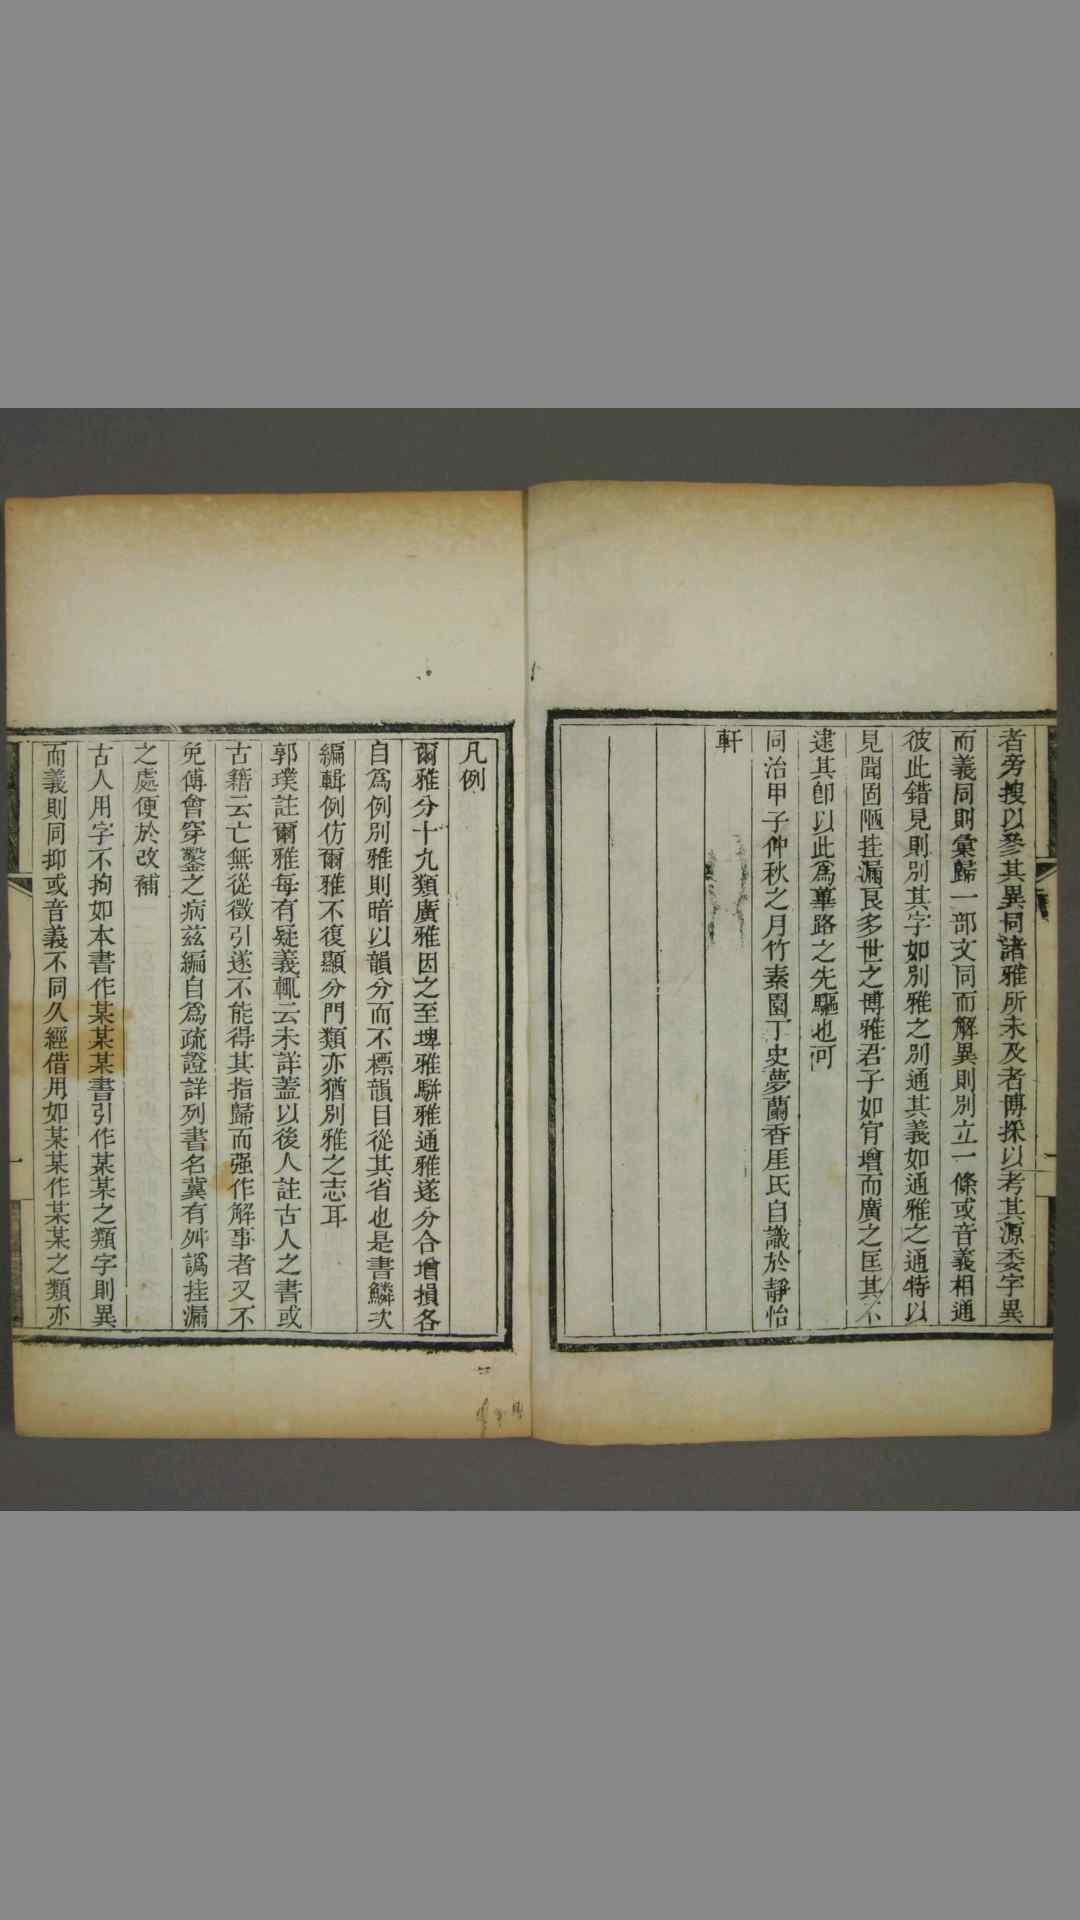 者旁搜以參其異同諸雅所未及者博採以考其源委字異
而義同則彙歸一部文同而解異則別立一條或音義相通
彼此錯見則別其字如別雅之別通其義如通雅之通特以
見聞固陋挂漏良多世之博雅君子如肯增而廣之匡其不
逮其卽以此爲蓽路之先驅也可
同治甲子仲秋之月竹素園丁史夢蘭香厓氏自識於靜怡
軒
凡例
爾雅分十九類廣雅因之至埤雅駢雅通雅遂分合增損各
自爲例別雅則暗以韻分而不標韻目從其省也是書鱗次
編輯例仿爾雅不復顯分門類亦猶別雅之志耳
郭璞註爾雅每有疑義輒云未詳蓋以後人註古人之書或
古籍云亡無從徵引遂不能得其指歸而强作解事者又不
免傅會穿鑿之病茲編自爲疏證詳列書名冀有舛譌挂漏
之處便於改補
古人用字不拘如本書作某某某書引作某某之類字則異
而義則同抑或音義不同久經借用如某某作某某之類亦
一